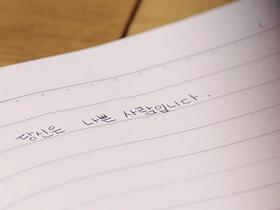 당신은 나쁜 사람입니다.